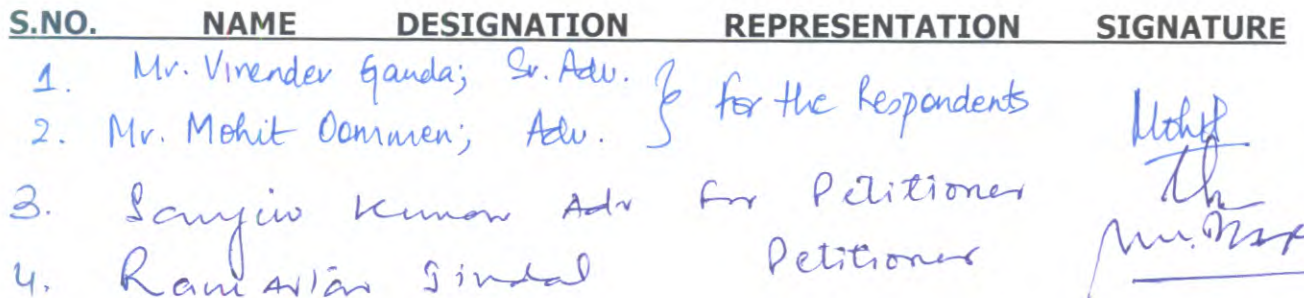 S.NO. NAME DESIGNATION REPRESENTATION SIGNATURE
1. Mr. Virender Ganda; Sr. Adv. } for the Respondents
2. Mr. Mohit Oommen; Adv. Mohit
3. Sanjiv Kumar Adv for Petitioner
4. Ram Avtar Jindal Petitioner